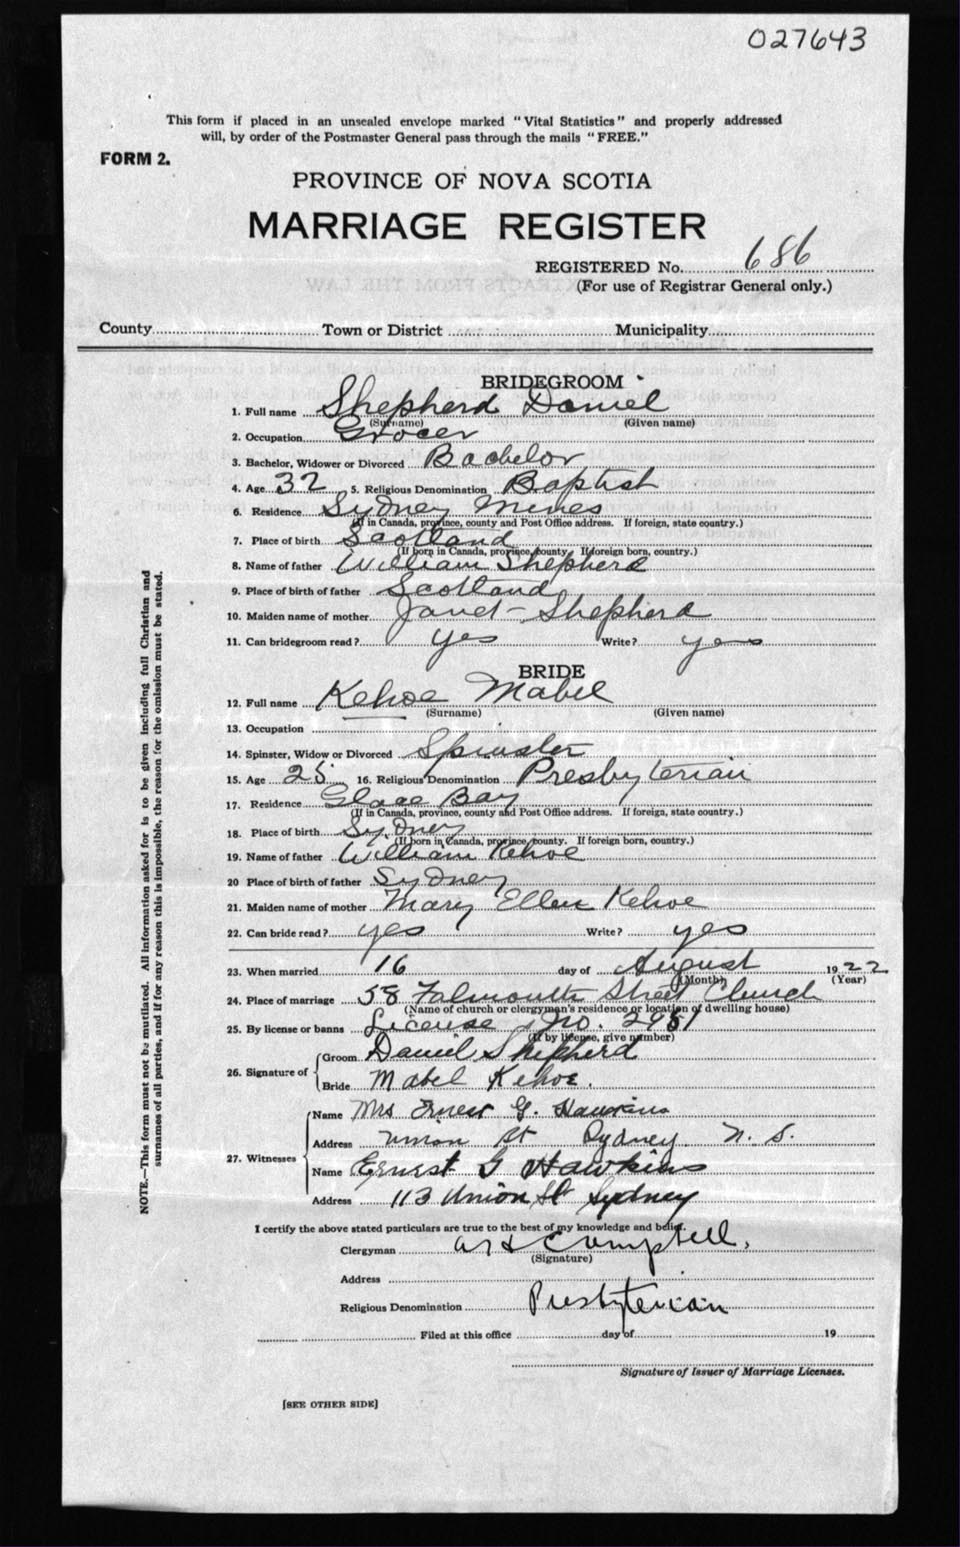 027643
This form if placed in an unsealed envelope marked "Vital Statistics" and properly addressed
will, by order of the Postmaster General pass through the mails "FREE."
FORM 2.
PROVINCE OF NOVA SCOTIA
MARRIAGE REGISTER
REGISTERED No. 686
(For use of Registrar General only.)
County Town or District Municipality
BRIDEGROOM
1. Full name Shepherd Daniel
(Surname) (Given name)
2. Occupation Grocer
3. Bachelor, Widower or Divorced Bachelor
4. Age 32 5. Religious Denomination Baptist
6. Residence Sydney Mines
(If in Canada, province, county and Post Office address. If foreign, state country.)
7. Place of birth Scotland
(If born in Canada, province, county. If foreign born, country.)
8. Name of father William Shepherd
9. Place of birth of father Scotland
10. Maiden name of mother Janet Shepherd
11. Can bridegroom read? yes Write? yes
BRIDE
12. Full name Kehoe Mabel
(Surname) (Given name)
13. Occupation
14. Spinster, Widow or Divorced Spinster
15. Age 25 16. Religious Denomination Presbyterian
17. Residence Glace Bay
(If in Canada, province, county and Post Office address. If foreign, state country.)
18. Place of birth Sydney
(If born in Canada, province, county. If foreign born, country.)
19. Name of father William Kehoe
20 Place of birth of father Sydney
21. Maiden name of mother Mary Ellen Kehoe
22. Can bride read? yes Write? yes
23. When married 16 day of August 1922
(Month) (Year)
24. Place of marriage 58 Falmouth Street Church
(Name of church or clergyman's residence or location of dwelling house)
25. By license or banns License No.
(If by license, give number)
26. Signature of Groom Daniel Shepherd
Bride Mabel Kehoe.
27. Witnesses Name Mrs Ernest G. Hawkins
Address Union St Sydney N. S.
Name Ernest G Hawkins
Address 113 Union St Sydney
I certify the above stated particulars are true to the best of my knowledge and belief.
Clergyman Campbell,
(Signature)
Address
Religious Denomination Presbyterian
Filed at this office day of 19
Signature of Issuer of Marriage Licenses.
[SEE OTHER SIDE]
NOTE.—This form must not be mutilated. All information asked for is to be given including full Christian and
surnames of all parties, and if for any reason this is impossible, the reason for the omission must be stated.